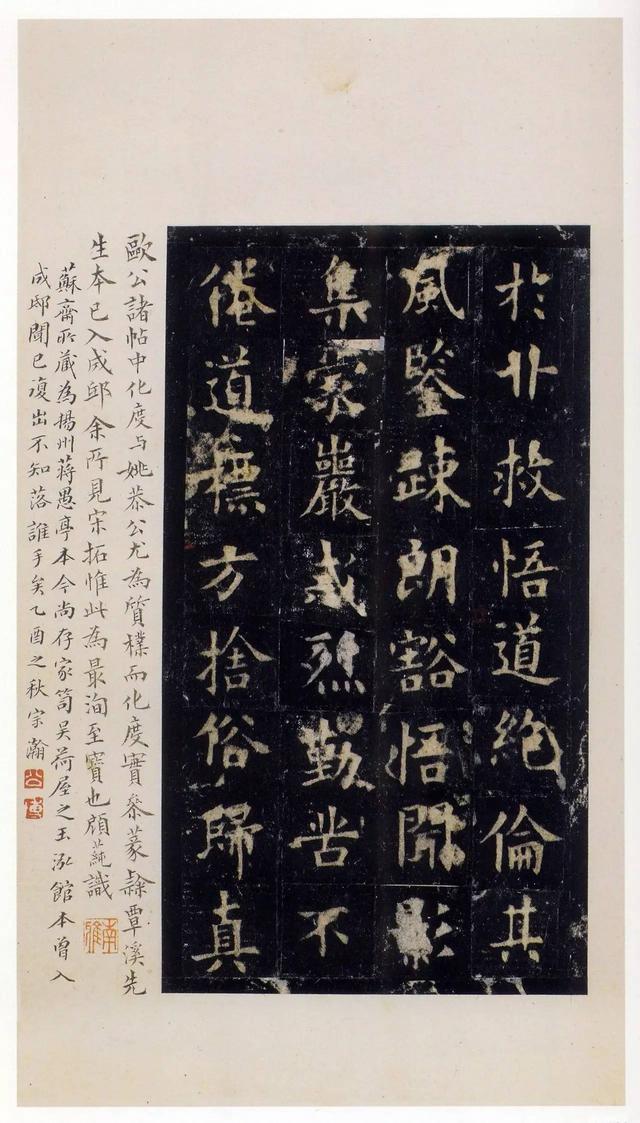 於丱救悟道絶倫其
風鑒疎朗豁悟聞影
集家巖或烈勤苦不
倦道標方捨俗歸真
歐公諸帖中化度与姚恭公尤為質樸而化度實參篆隸覃溪先
生本已入成邸余所見宋拓惟此為最洵至寶也顧蒓識
蘇齋所藏為揚州蔣愚亭本今尚存家笥吴荷屋之玉泓館本曾入
成邸聞已復出不知落誰手矣乙酉之秋宗瀚
公博